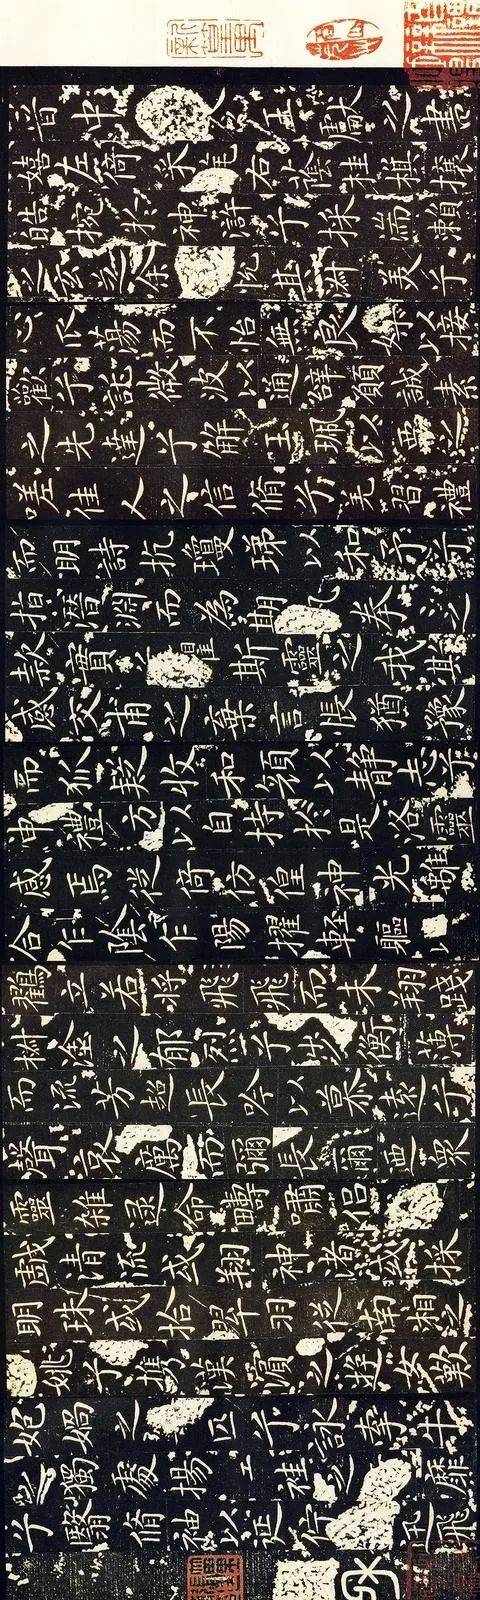 晉中令王獻之書
嬉左倚采旄右蔭桂旗攘
皓捥於神滸兮採湍瀨
之玄芝余悅其淑美兮
心振蕩而不怡無良媒以接
歡兮託微波以通辭願誠素
之先達兮解玉珮以要之
嗟佳人之信脩兮羌習禮
而明詩抗瓊珶以和予兮
指潛淵而為期執拳之
款實兮懼斯靈之我欺
感交甫之棄言悵猶豫
而狐疑收和顏以靜志兮
申禮防以自持於是洛靈
感焉徙倚仿偟神光離
合乍陰乍陽擢輕軀
鶴立若將飛而未翔踐
椒塗之郁烈兮步衡薄
而流芳超長吟以慕遠兮
聲哀厲而彌長爾迺眾
靈雜遝命疇嘯侶
戲清流或翔神渚或採
明珠或拾翠羽從南湘之
姚兮攜漢濱之游女歎
炮媧之匹兮詠牽牛
之獨處揚袿之靡
兮翳脩袖以延佇迅飛